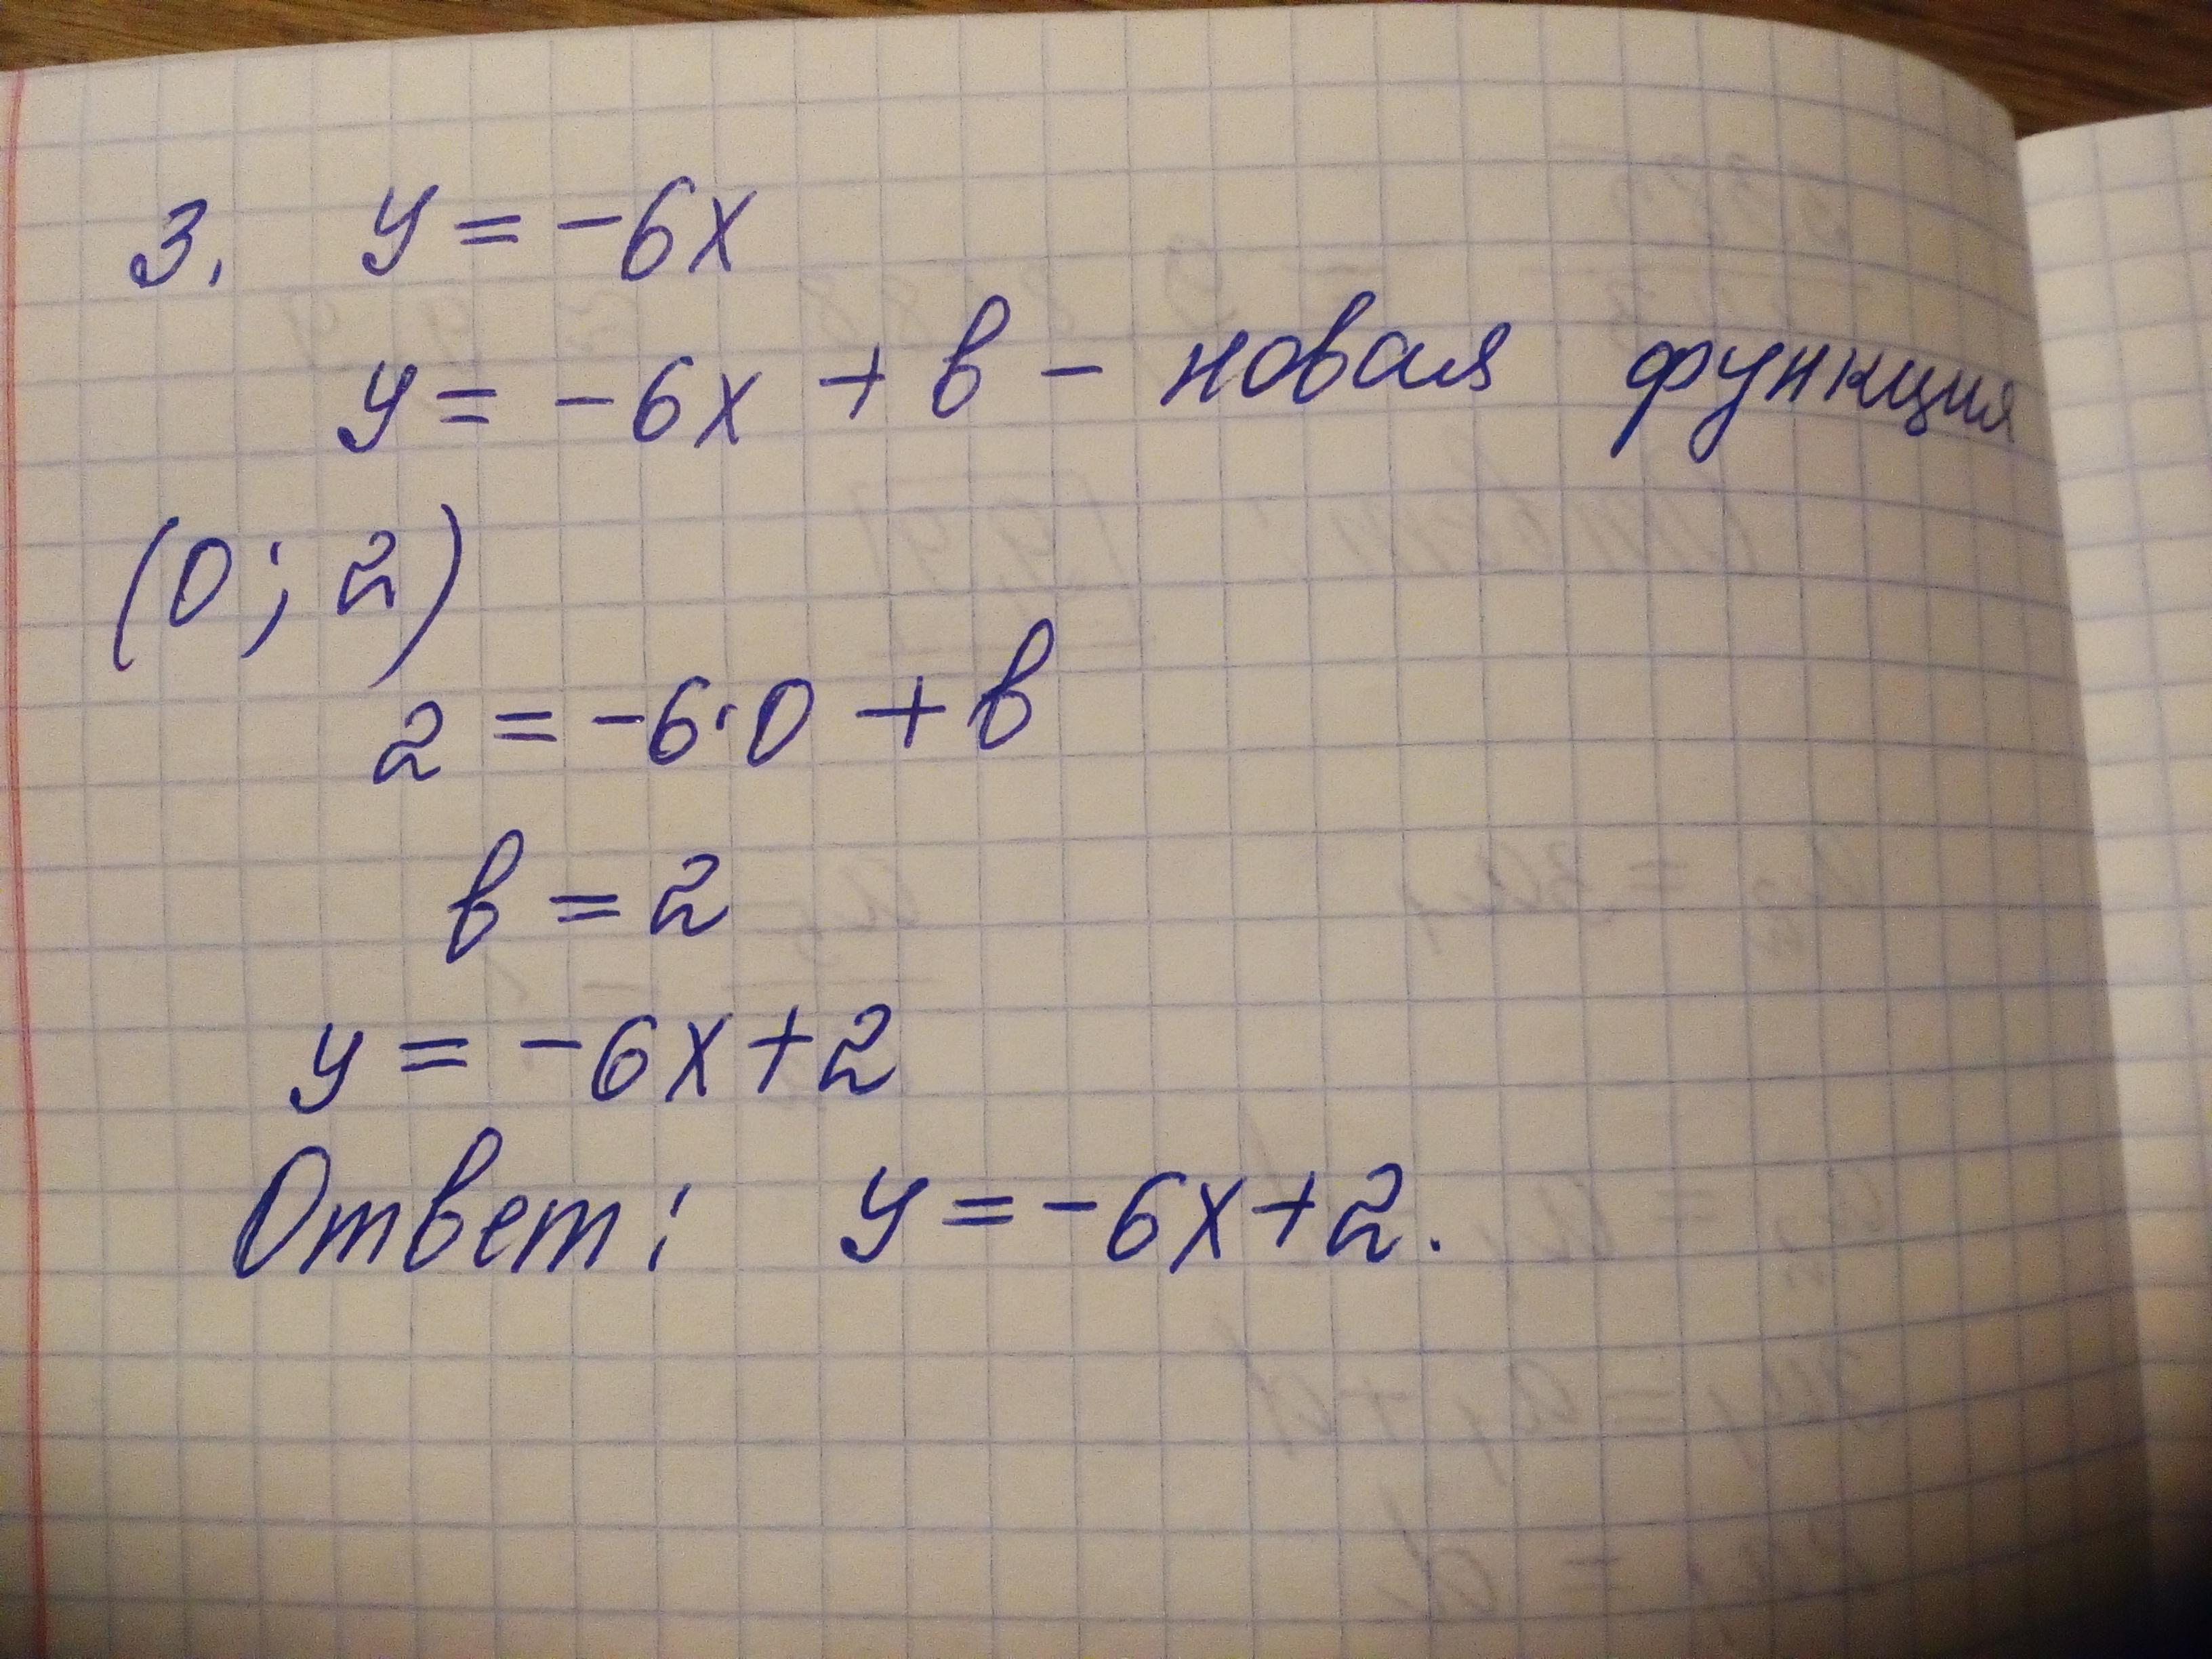 3. y = -6x
y = -6x + b - новая функция
(0; 2)
2 = -6·0 + b
b = 2
y = -6x+2
Ответ: y = -6x+2.